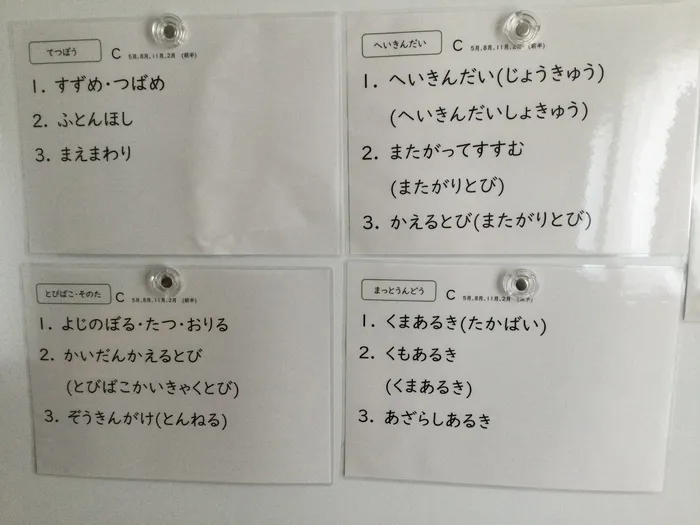 てつぼう C 5月、8月、11月、2月 (前半)
1. すずめ・つばめ
2. ふとんほし
3. まえまわり
へいきんだい C 5月、8月、11月、2月 (前半)
1. へいきんだい(じょうきゅう)
(へいきんだいしょきゅう)
2. またがってすすむ
(またがりとび)
3. かえるとび(またがりとび)
とびばこ・そのた C 5月、8月、11月、2月 (前半)
1. よじのぼる・たつ・おりる
2. かいだんかえるとび
(とびばこかいきゃくとび)
3. ぞうきんがけ(とんねる)
まっとうんどう C 5月、8月、11月、2月
1. くまあるき(たかばい)
2. くもあるき
(くまあるき)
3. あざらしあるき